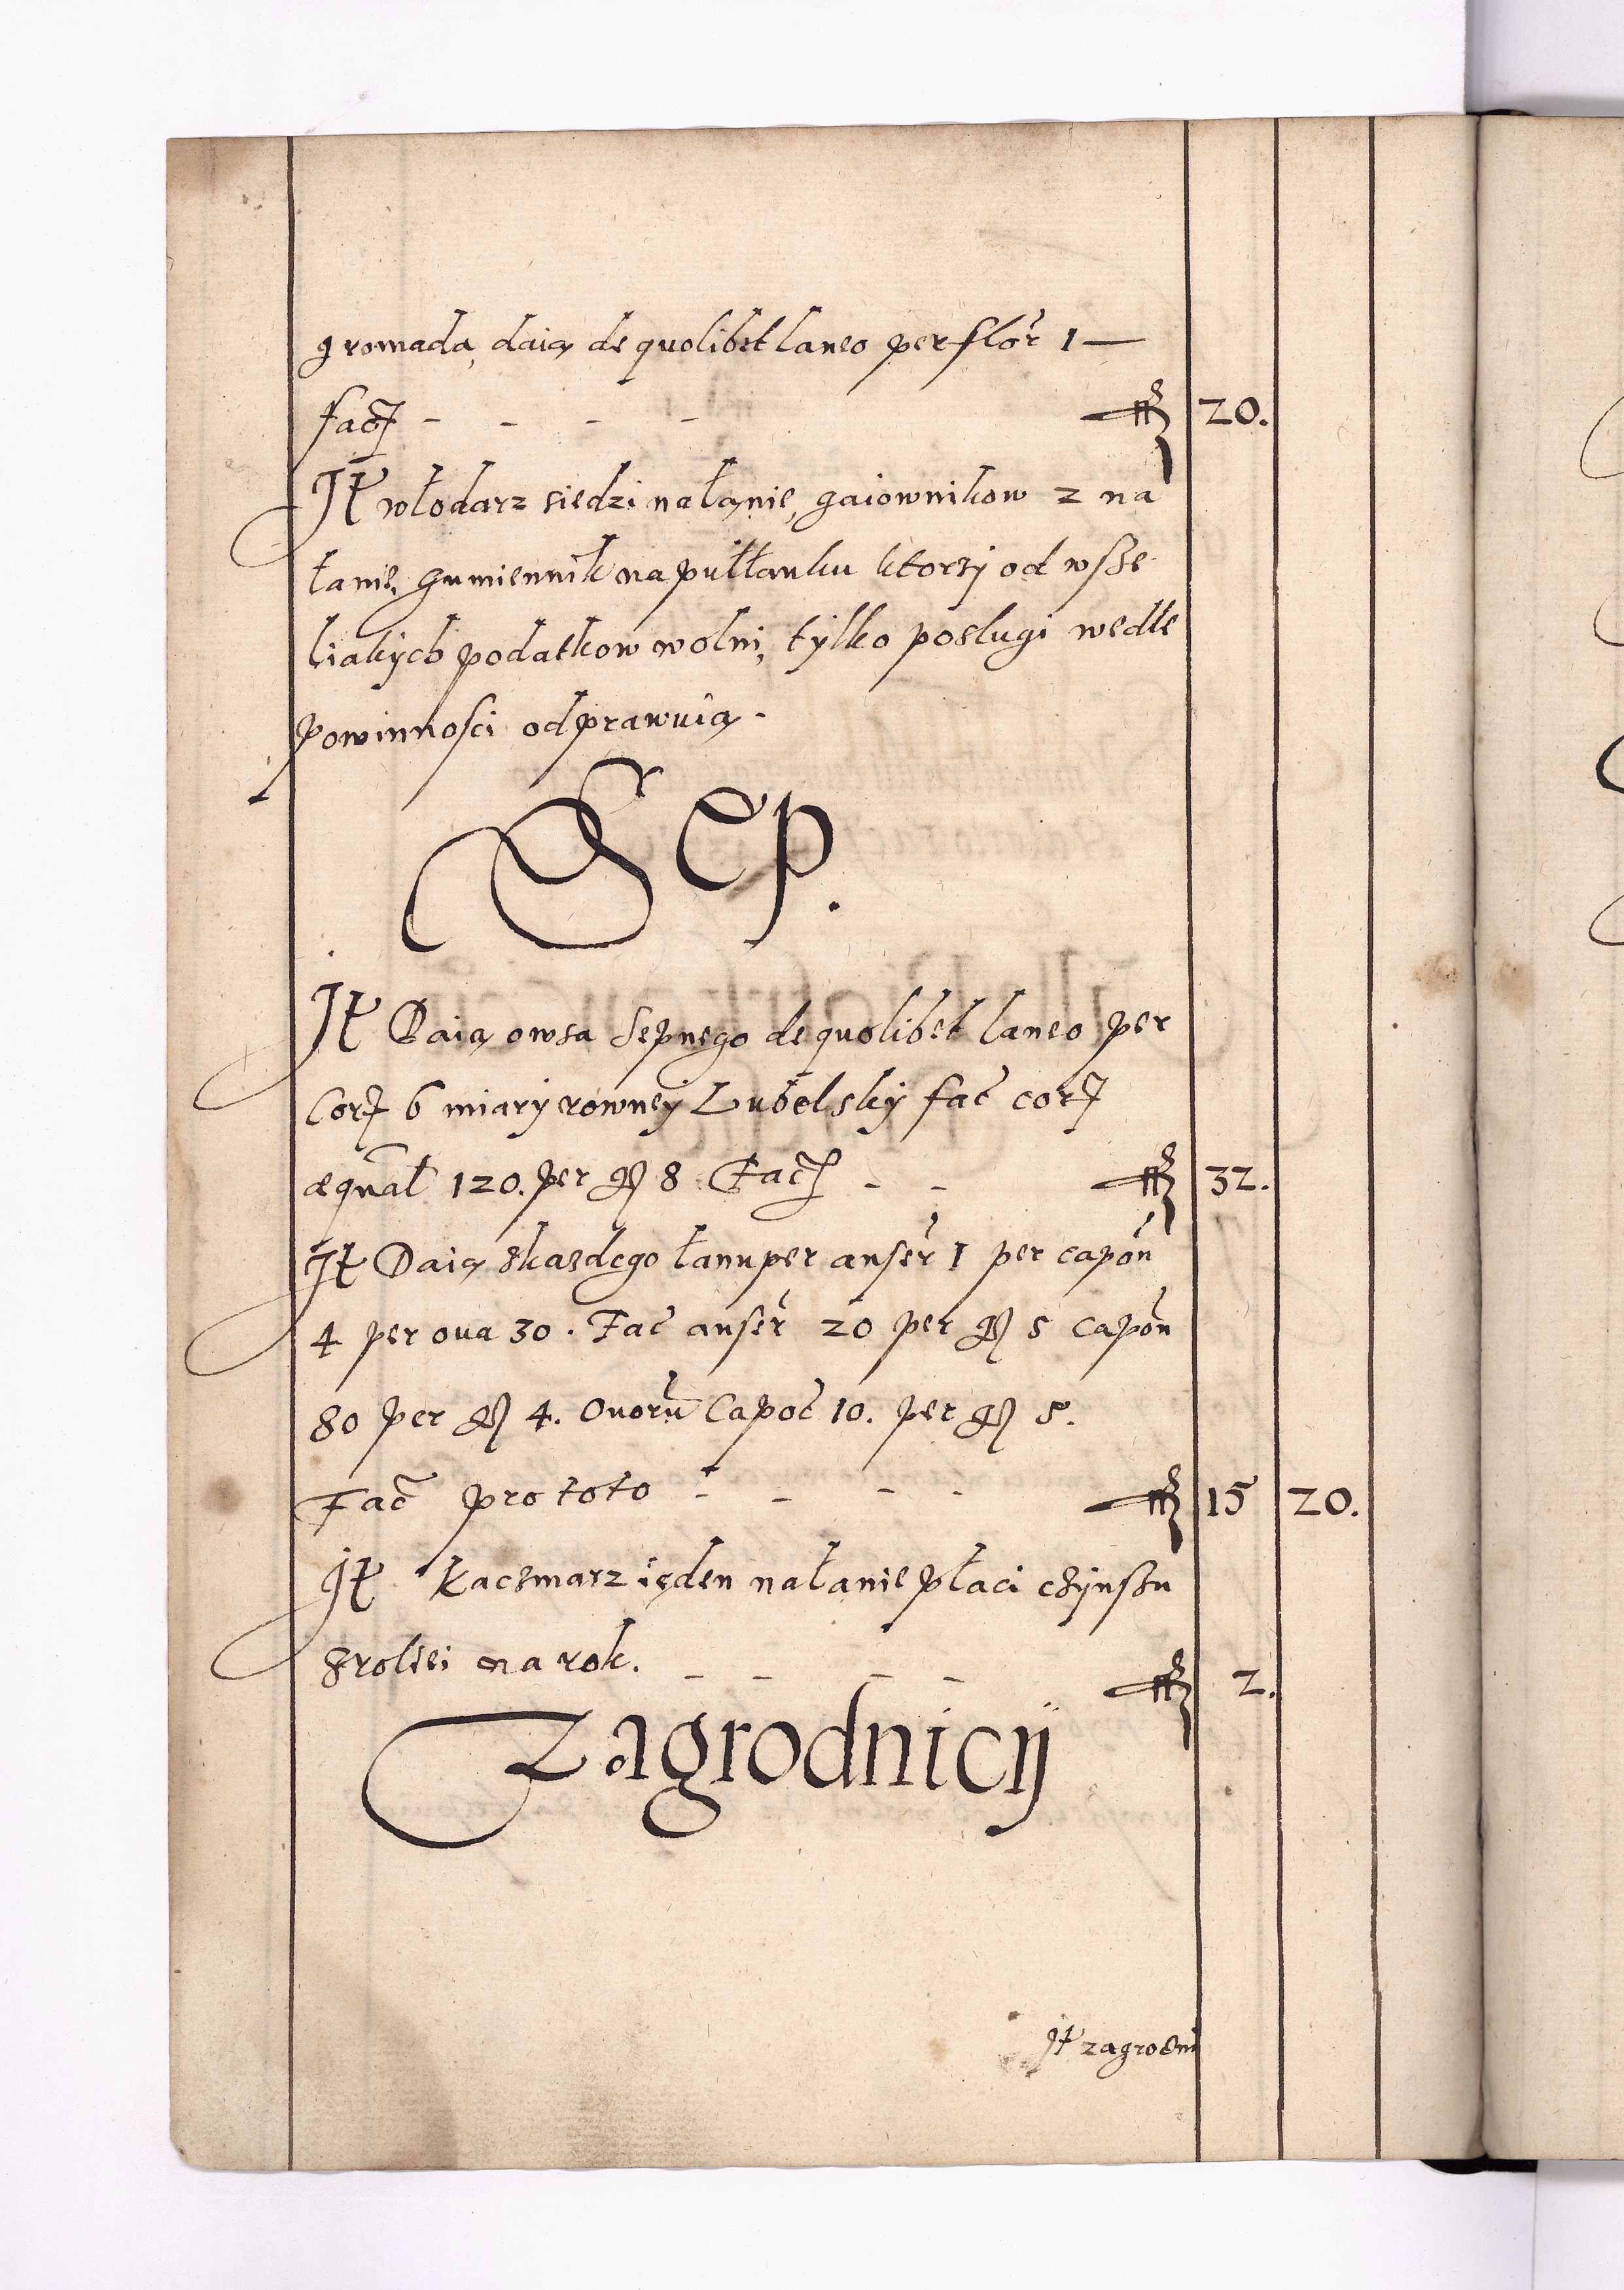 gromada, daią de quolibet laneo per flor 1 —
fact - - - - fl 20.
Jt włodarz siedzi na łanie, gaiownikow 2 na
łanie, gumiennik na pułłanku ktorzÿ od wsze
liakÿch podatkow wolni, tÿlko poslugi wedle
powinnosci odprawuią.
Sep.
Jt Daią owsa sepnego de quolibet laneo per
Cor 6 miarÿ rownej Lubelskÿ fac cor
æqual 120. per g 8 Fact - - fl 32.
Jt Daią zkazdego łanu per anser 1 per capon
4 per oua 30. Fac anser 20 per g 5 capon
80 per g 4. Ouoru Capoc 10. per g 5.
Fac pro toto - - - - fl 15 20.
Jt kaczmarz ięden na łanie płaci czÿnszu
zroliei na rok. - - - - fl 2.
Zagrodnicÿ
Jt zagrodni